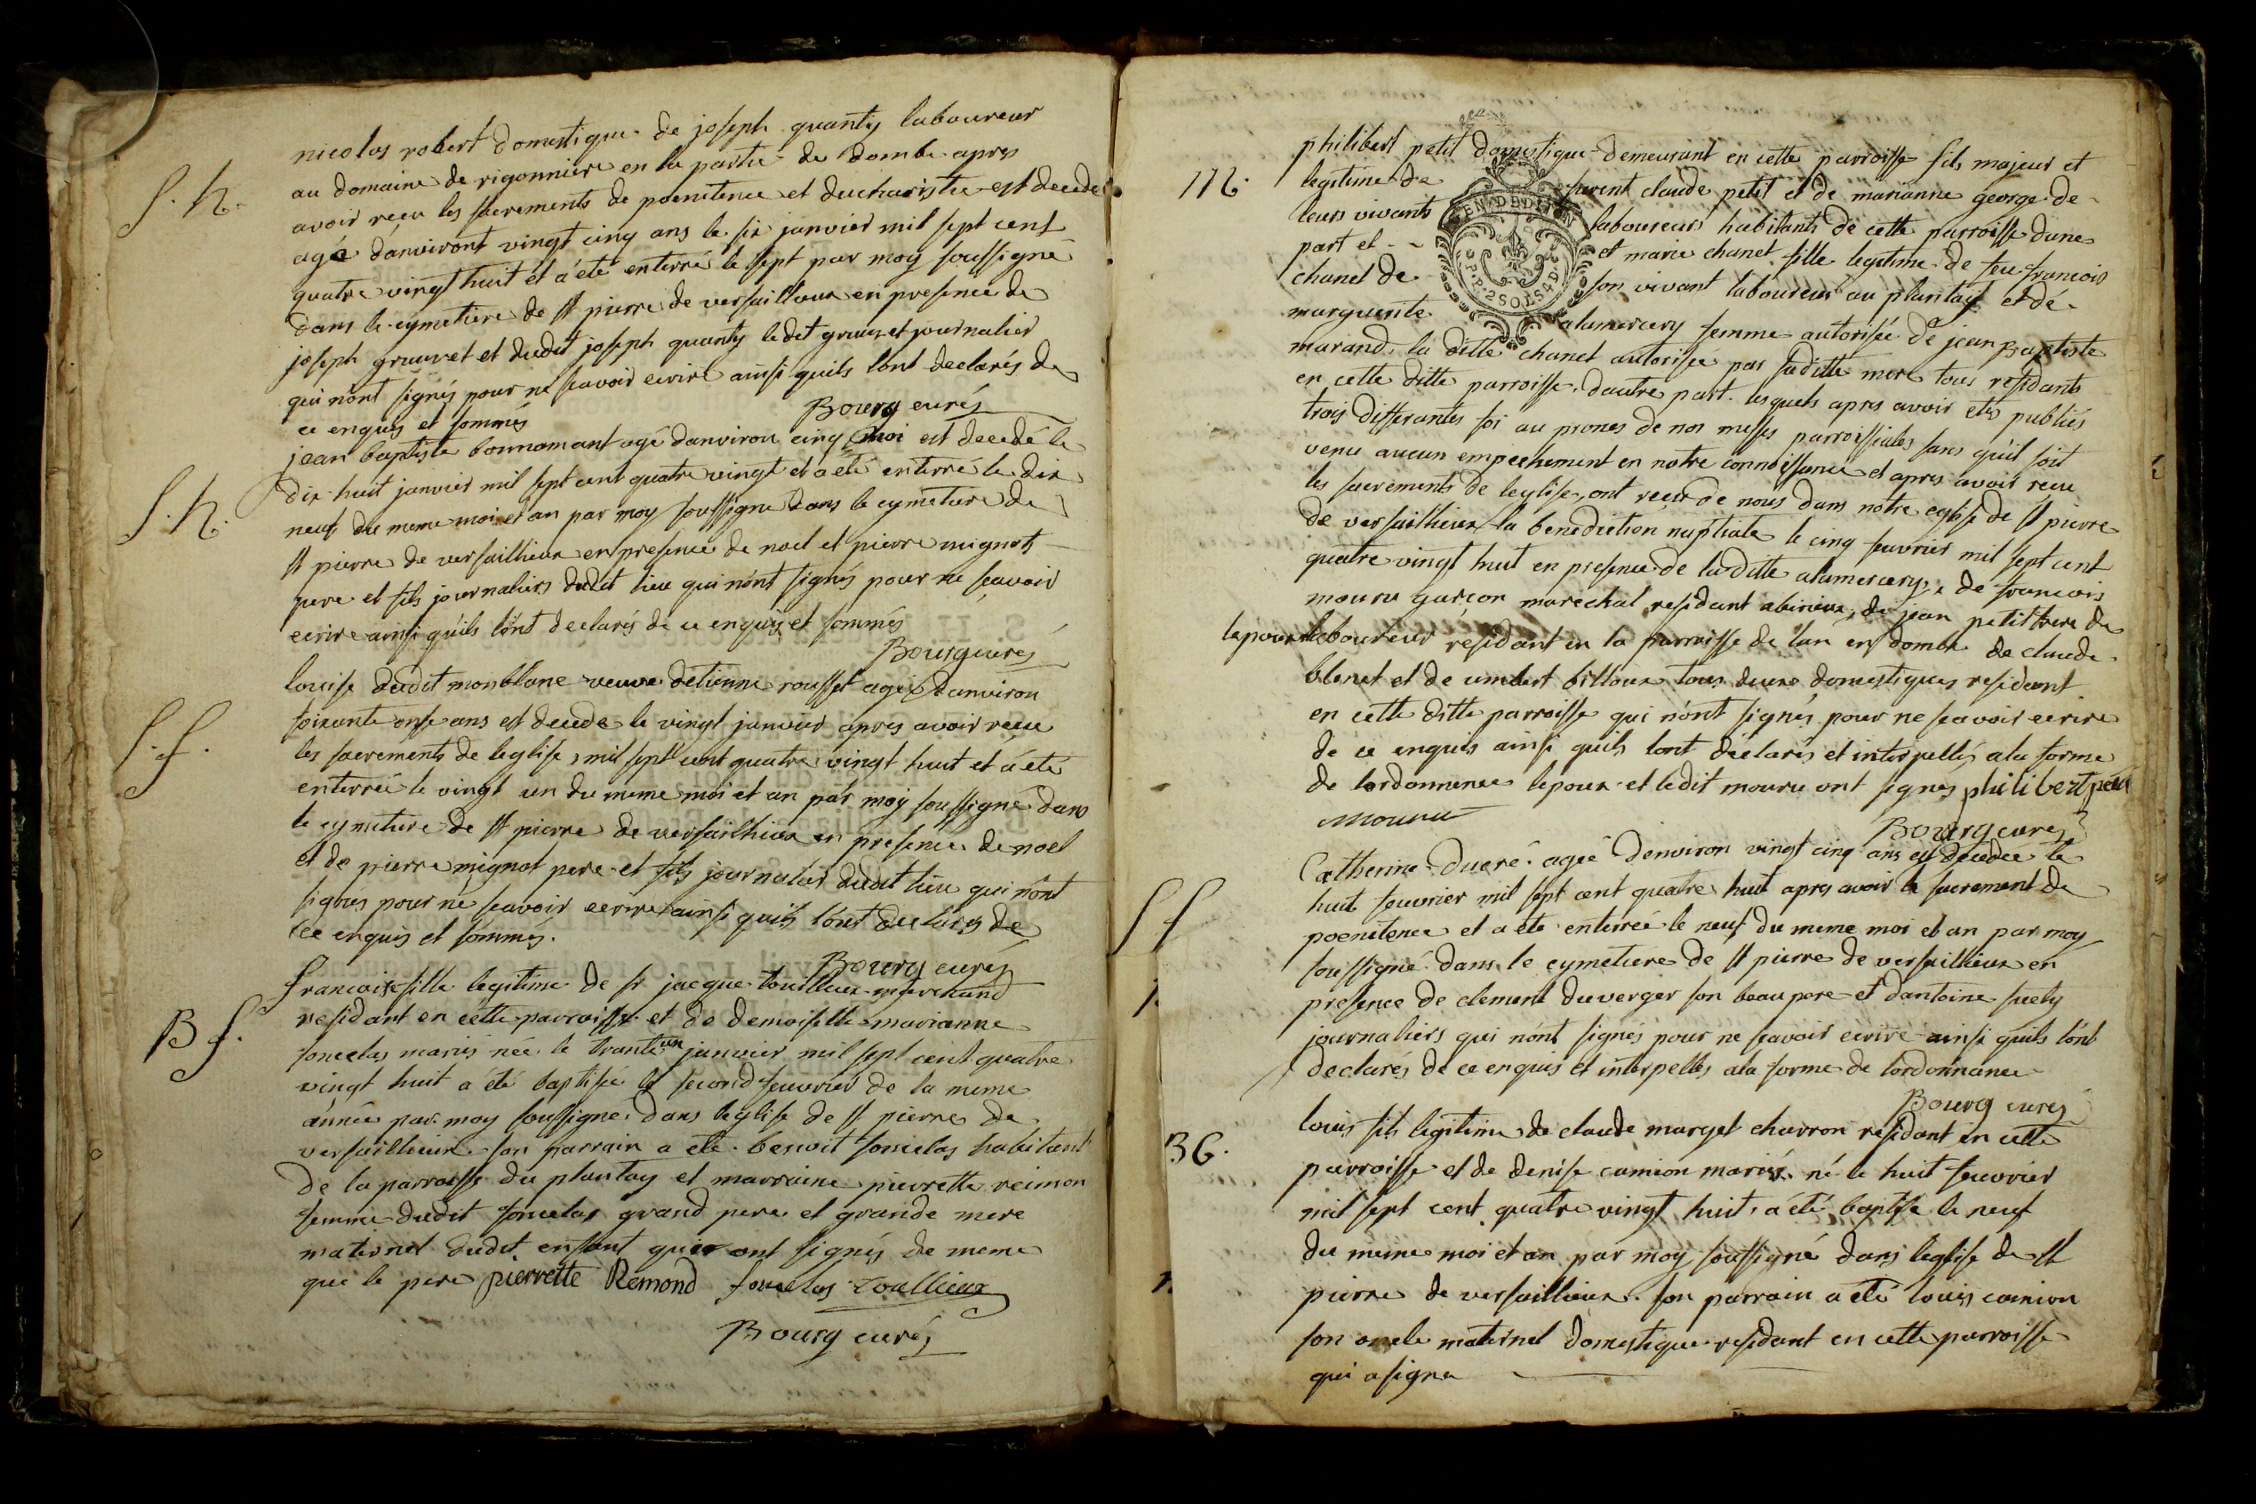 nicolas robert domestique de joseph quanty laboureur
S. h. au domaine de rigonniere en la partie de dombe apres
avoir reçu les sacrements de poenitence et deucharistie est decedé
agé danviront vingt cinq ans le six janvier mil sept cent
quatre vingt huit et a été enterré le sept par moy soussigné
dans le cymetiere de st pierre de versaillieux en presence de
joseph grauvet et dudit joseph quanty ledit grauvet journalier
qui n'ont signés pour ne scavoir ecrire ainsi quils lont declarés de
ce enquis et sommés
Bourg curés
jean baptiste bonnamant agé danviron cinq moi est decedé le
S. h. dix huit janvier mil sept cent quatre vingt et a été enterré le dix
neuf du meme moi et an par moy soussigné dans le cymetiere de
st pierre de versaillieux en presence de noel et pierre mignot
pere et fils journaliers dudit lieu qui n'ont signés pour ne scavoir
ecrire ainsi quils lont declarés de ce enquis et sommés
Bourg curés
louise dudit monblanc veuve detienne rousset agée danviron
S. f. soixante onse ans est decede le vingt janvier apres avoir reçue
les sacrements de leglise, mil sept cent quatre vingt huit et a été
enterrée le vingt un du meme moi et an par moy soussigné dans
le cymetiere de st pierre de versaillieux en presence de noel
et de pierre mignot pere et fils journalier dudit lieu qui n'ont
signés pour ne scavoir ecrire ainsi quils lont declarés de
ce enquis et sommés.
Bourg curés
francoise fille legitime de sr jacque touillieux marchand
B f. residant en cette parroisse et de demoiselle marianne
foncelas mariés née le trante un janvier mil sept cent quatre
vingt huit a été baptisée le second feuvrier de la meme
année par moy soussigné dans leglise de st pierre de
versaillieux son parrain a été benoit foncelas habitant
de la parroisse du plantay et marraine pierrette reimon
femme dudit foncelas grand pere et grande mere
maternel dudit enfant qui ont signés de meme
que le pere pierrette Remond foncelas touillieux
Bourg curés
philibert petit domestique demeurant en cette parroisse fils majeur et
M. legitime de furent claude petit et de marianne george de
leurs vivants laboureurs habitants de cette parroisse dune
part et et marie chanel fille legitime de feu francois
chanel de son vivant laboureur au plantay et de
marguerite alamercery femme autorisée de jean Baptiste
GEN. DE DIJON
P.P. 2 SOLS 4 D.
marand, la ditte chanel autorisée pas sa ditte mere tous residants
en cette ditte parroisse. dautre part. lesquels apres avoir etés publiés
trois differantes foi au prones de nos messes parroissiales sans quil soit
venu aucun empechement en notre connoissance et apres avoir reçu
les sacrements de leglise, ont reçu de nous dans notre eglise de st pierre
de versaillieux la benediction nuptiale le cinq feuvrier mil sept cent
quatre vingt huit en presence de laditte alamercery, de francois
mouru garçon marechal residant abirieux, de jean petit frere de
lepoux laboureur residant en la parroisse de lan en dombe de claude
blanet et de umbert billoux tous deux domestiques residant
en cette ditte parroisse qui n'ont signés pour ne scavoir ecrire
de ce enquis ainsi quils lont déclarés et interpellés ala forme
de lordonnence lepoux et ledit mouru ont signés philibert petit
mouru
Bourg curés
Catherine ducré agée denviron vingt cinq ans est decedée le
S f huit feuvrier mil sept cent quatre huit apres avoir le sacrement de
poenitence et a été enterrée le neuf du meme moi et an par moy
soussigné dans le cymetiere de st pierre de versaillieux en
presence de clement duverger son beau pere et dantoine suety
journaliers qui n'ont signés pour ne scavoir ecrire ainsi quils lont
declarés de ce enquis et interpellés ala forme de lordonnance
Bourg curés
louis fils legitime de claude marget charron residant en cette
B G. parroisse et de denise camion mariés né le huit feuvrier
mil sept cent quatre vingt huit, a été baptisé le neuf
du meme moi et an par moy soussigné dans leglise de st
pierre de versaillieux. son parrain a été louis camion
son oncle maternel domestique residant en cette parroisse
qui a signé